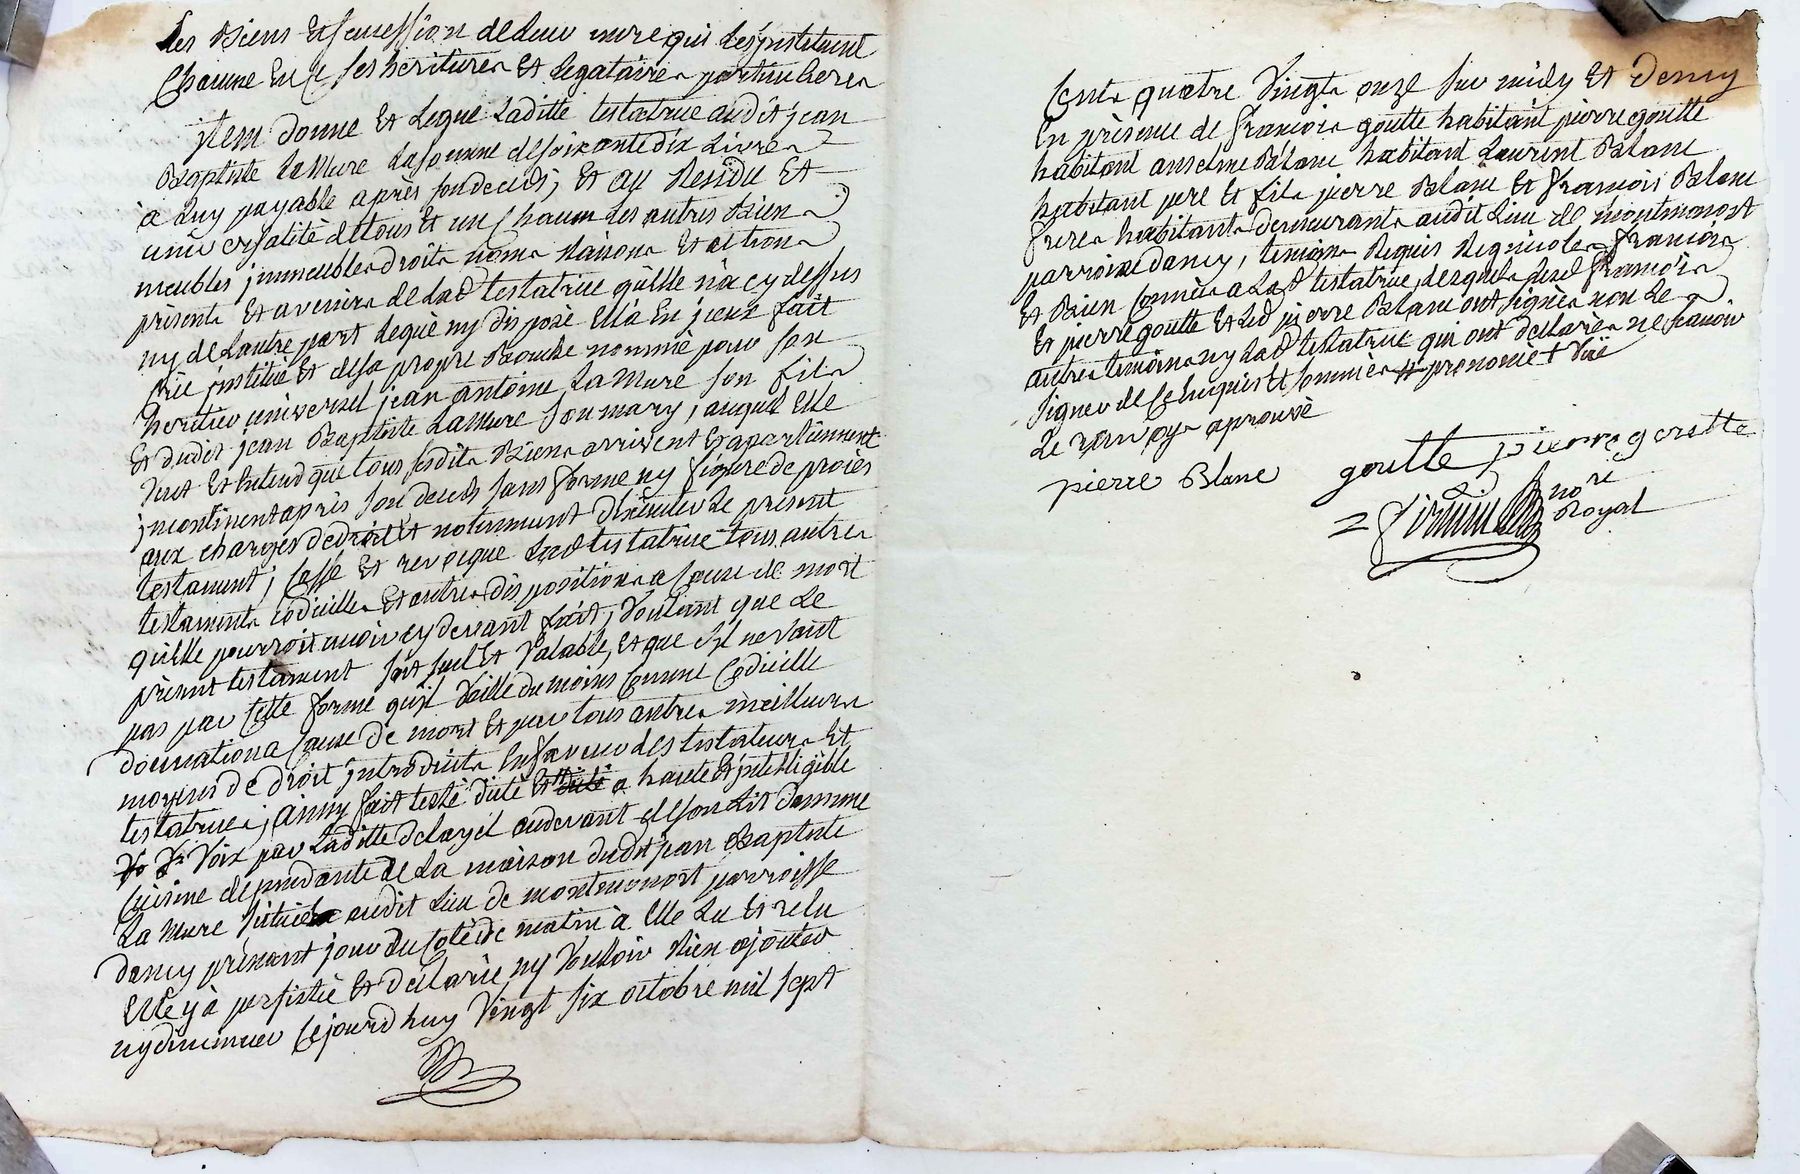 Les Biens Et succession de leur mere qui Les jnstituent
Chacune En ce ses heritieres Et Legataires particulieres
jtem donne Et Legue Laditte testatrice audit jean
Baptiste LaMure La somme de soixante dix Livres
a Luy payable après son decès; Et au Residu Et
universalité de tous Et un Chacun Les autres Biens
meubles jmmeubles droits noms Raisons Et actions
présents Et avenirs de Lad testatrice quelle n'a cy dessus
ny de Lautre part Legué ny disposé Ella En jceux fait
créé jnstitué Et de sa propre Bouche nommé pour son
heritier universel jean antoine LaMure son fils
Et dudit jean Baptiste LaMure son mary, auquel Elle
veut Et Entend que tous sesdits Biens arrivent Et apartiennent
jncontinent après son decès sans forme ny figure de procès
aux charges de droit Et notamment d'Executer Le présent
testament; Casse Et revoque Lad testatrice tous autres
testaments codicilles Et autres dispositions a Cause de mort
quelle pourroit avoir cy devant fait, Voulant que Le
présent testament soit seul Et Valable, Et que s'jl ne Vaut
pas par Cette forme qu'jl Vaille du moins Comme Codicille
donnation a Cause de mort Et par tous autres meilleurs
moyens de droit jntroduits En faveur des testateurs Et
testatrices; ainsy fait testé dicté Et a haute Et jntelligible
Voix par Laditte delayé audevant de son Lit dans une
Cuisine dependante de La maison dudit jean Baptiste
La Mure située audit Lieu de montmonost parroisse
dancy prenant jour du Coté de matin a Elle Lu Et relu
Elle y a persisté Et déclaré ny Vouloir Rien ajouter
ny diminuer Cejourd huy Vingt six octobre mil sept
Cents quatre Vingt onze sur midy Et demy
En présence de françois goutte habitant pierre goutte
habitant anselme Blanc habitant Laurent Blanc
habitant pere Et fils pierre Blanc Et françois Blanc
freres habitants demeurants audit Lieu de montmonost
parroisse dancy, temoins Requis Regnicoles françois
Et Bien Connus a Lad testatrice, desquels Led françois
Et pierre goutte Et Led pierre Blanc ont signés non Les
autres temoins ny Lad testatrice qui ont déclarés ne scavoir
signer de Ce Enquis Et sommés prenomé + Vüe
Le renvoy aprouvé
pierre Blanc goutte pierre goutte
nore
Royal